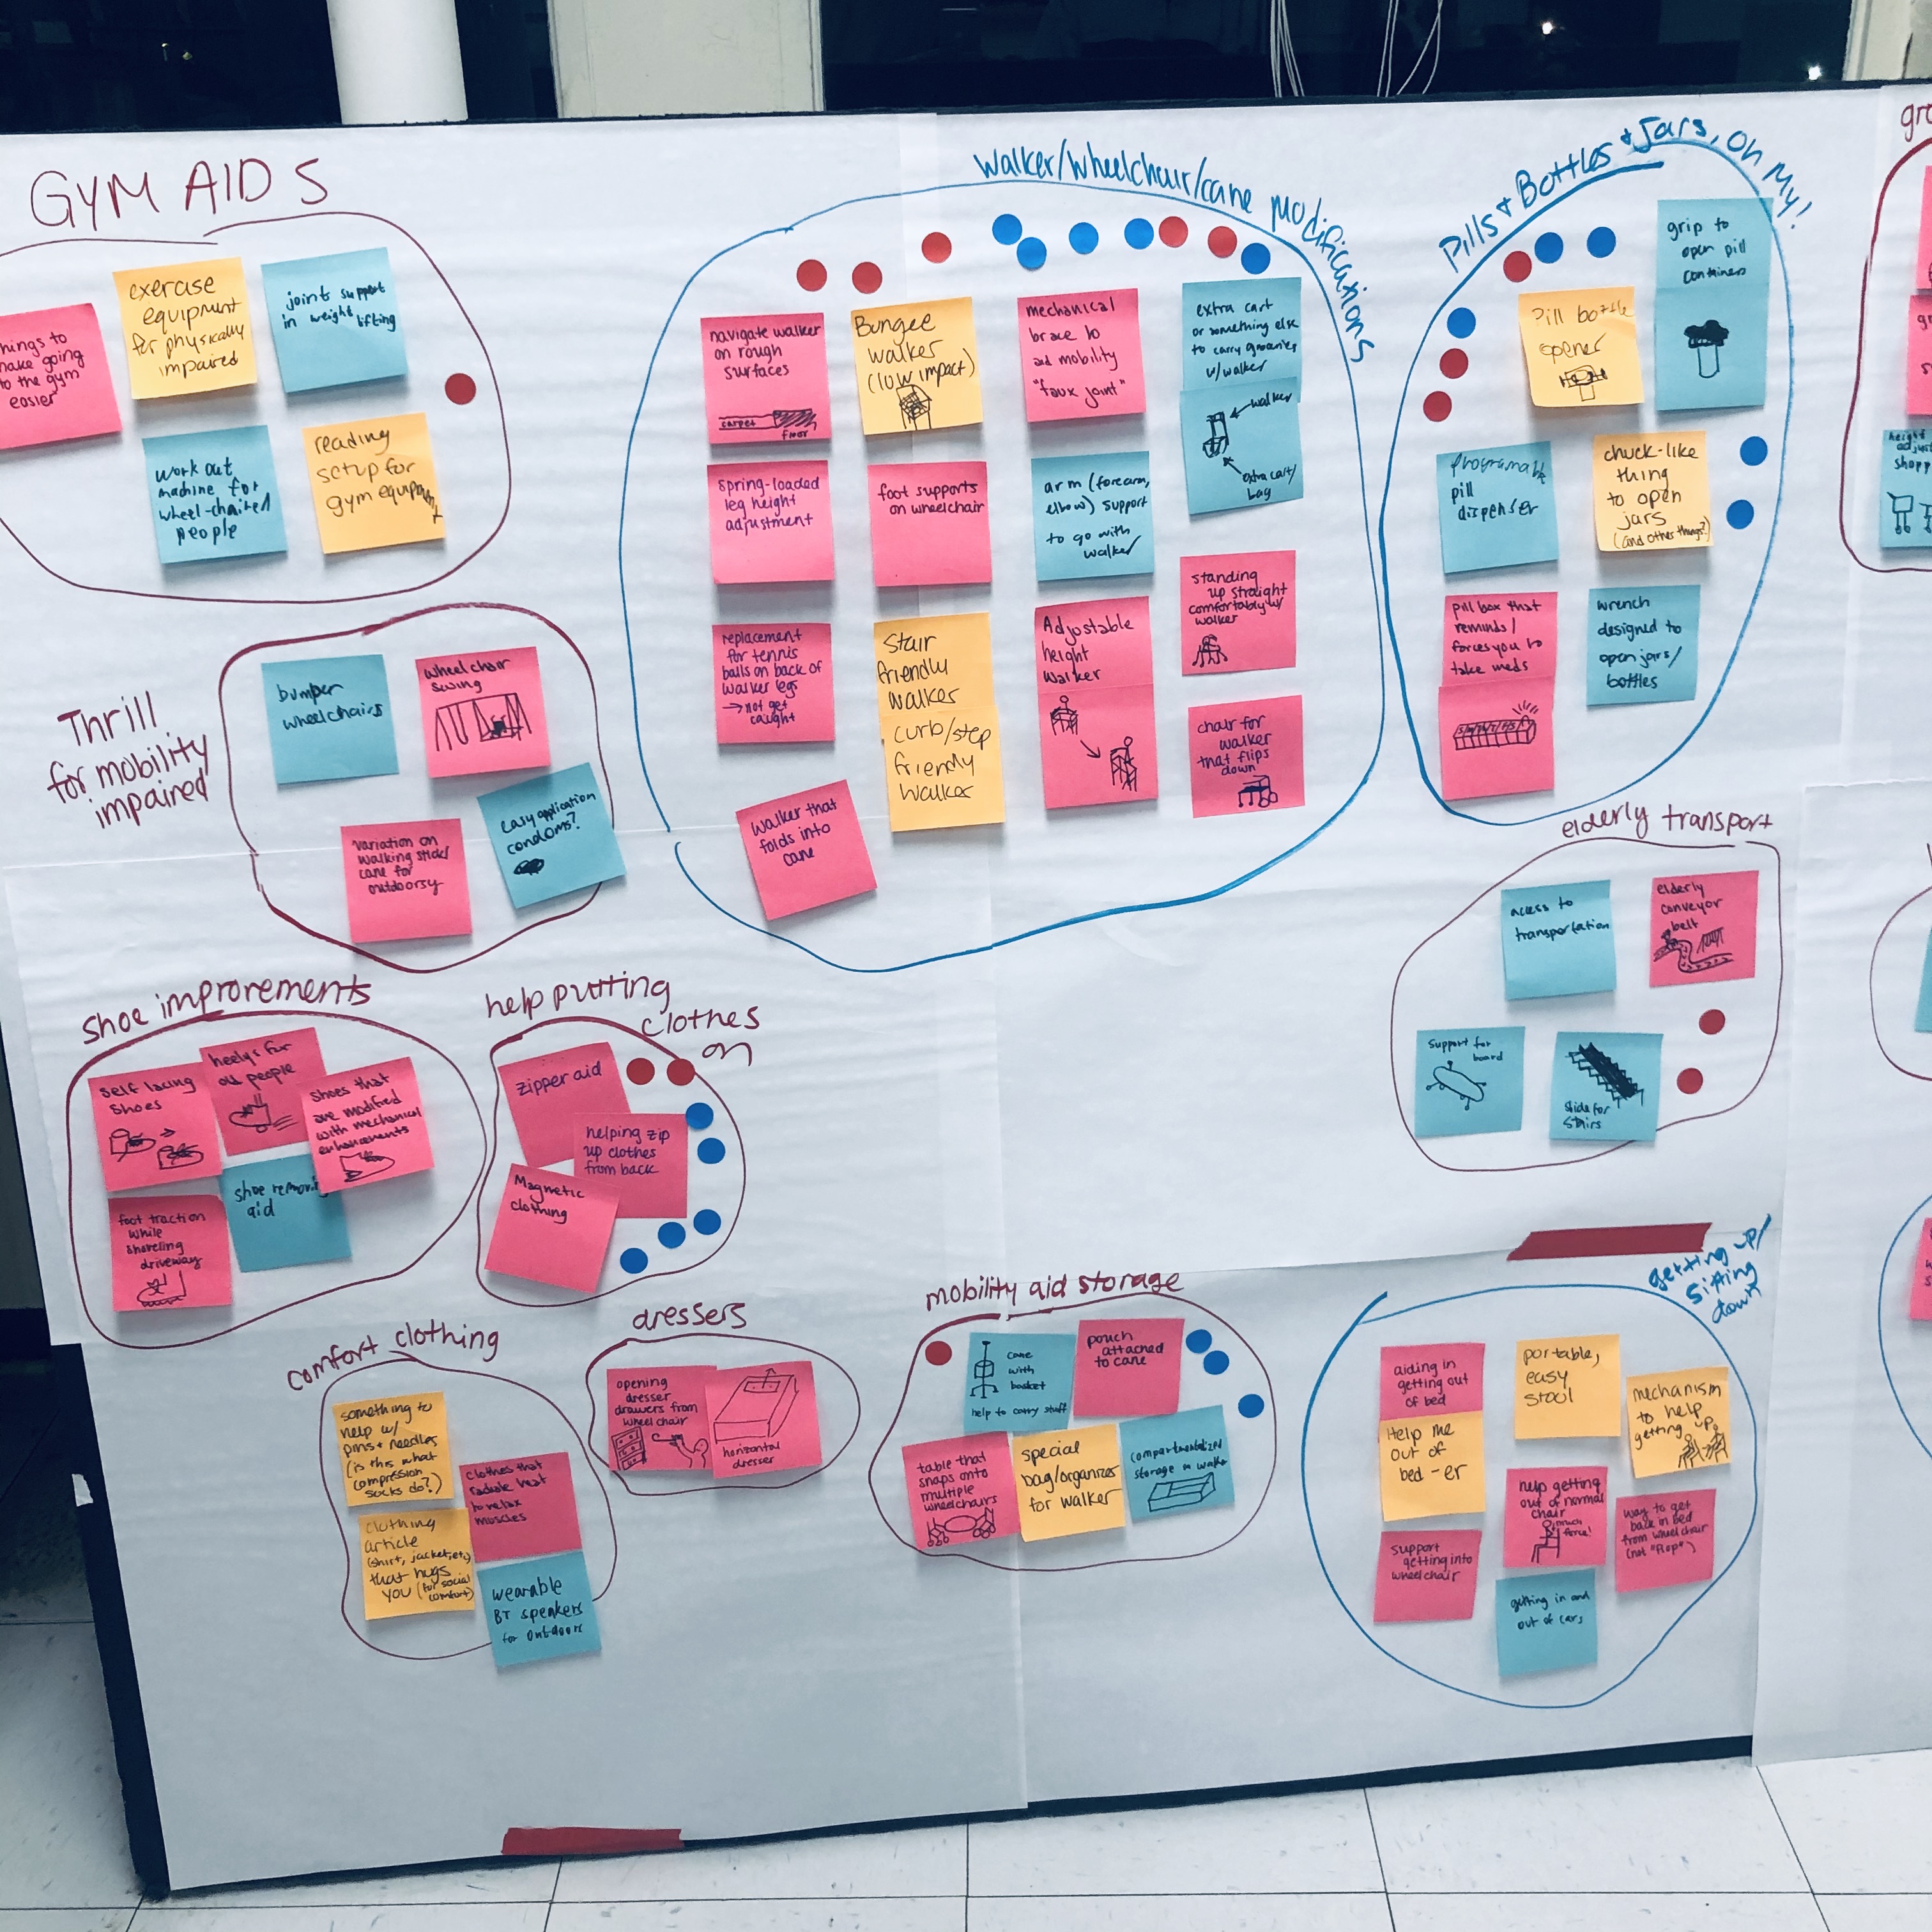 GYM AIDS
make going
to the gym
easier
exercise
equipment
for physically
impaired
joint support
in weight lifting
work out
machine for
wheel-chaired
people
reading
setup for
gym equipment
Walker/Wheelchair/cane Modifications
navigate walker
on rough
surfaces
carpet
floor
Bungee
walker
(low impact)
mechanical
brace to
aid mobility
"faux joint"
extra cart
or something else
to carry groceries
w/walker
walker
extra cart/
bag
spring-loaded
leg height
adjustment
foot supports
on wheelchair
arm (forearm,
elbow) support
to go with
walker
standing
up straight
comfortably w/
walker
replacement
for tennis
balls on back of
walker legs
→ not get
caught
Stair
friendly
walker
curb/step
friendly
walker
Adjustable
height
walker
chair for
walker
that flips
down
Walker that
folds into
cane
Pills + Bottles + Jars, Oh My!
Pill bottle
opener
grip to
open pill
containers
pill
dispenser
chuck-like
thing
to open
jars
(and other things?)
pill box that
reminds/
forces you to
take meds
wrench
designed to
open jars/
bottles
height
Thrill
for mobility
impaired
bumper
wheelchairs
wheelchair
swing
variation on
walking stick/
cane for
outdoorsy
easy application
condoms?
elderly transport
access to
transportation
elderly
conveyor
belt
Support for
board
slide for
stairs
Shoe improvements
self lacing
shoes
heelys for
old people
shoes that
are modified
with mechanical
enhancements
foot traction
while
shoveling
driveway
shoe removing
aid
help putting
clothes
on
zipper aid
helping zip
up clothes
from back
Magnetic
clothing
comfort clothing
something to
help w/
pins + needles
(is this what
compression
socks do?)
clothes that
radiate heat
to relax
muscles
clothing
article
(shirt, jacket, etc)
that hugs
you (for social
comfort)
wearable
BT speakers
for outdoors
dressers
opening
dresser
drawers from
wheelchair
horizontal
dresser
mobility aid storage
cane
with
basket
help to carry stuff
pouch
attached
to cane
table that
snaps onto
multiple
wheelchairs
special
bag/organizer
for walker
compartmentalized
storage in walker
getting up/
sitting
down
aiding in
getting out
of bed
portable,
easy
stool
mechanism
to help
getting up
Help me
out of
bed-er
help getting
out of normal
chair
much
force!
way to get
back in bed
from wheelchair
(not "flop")
support
getting into
wheelchair
getting in and
out of cars